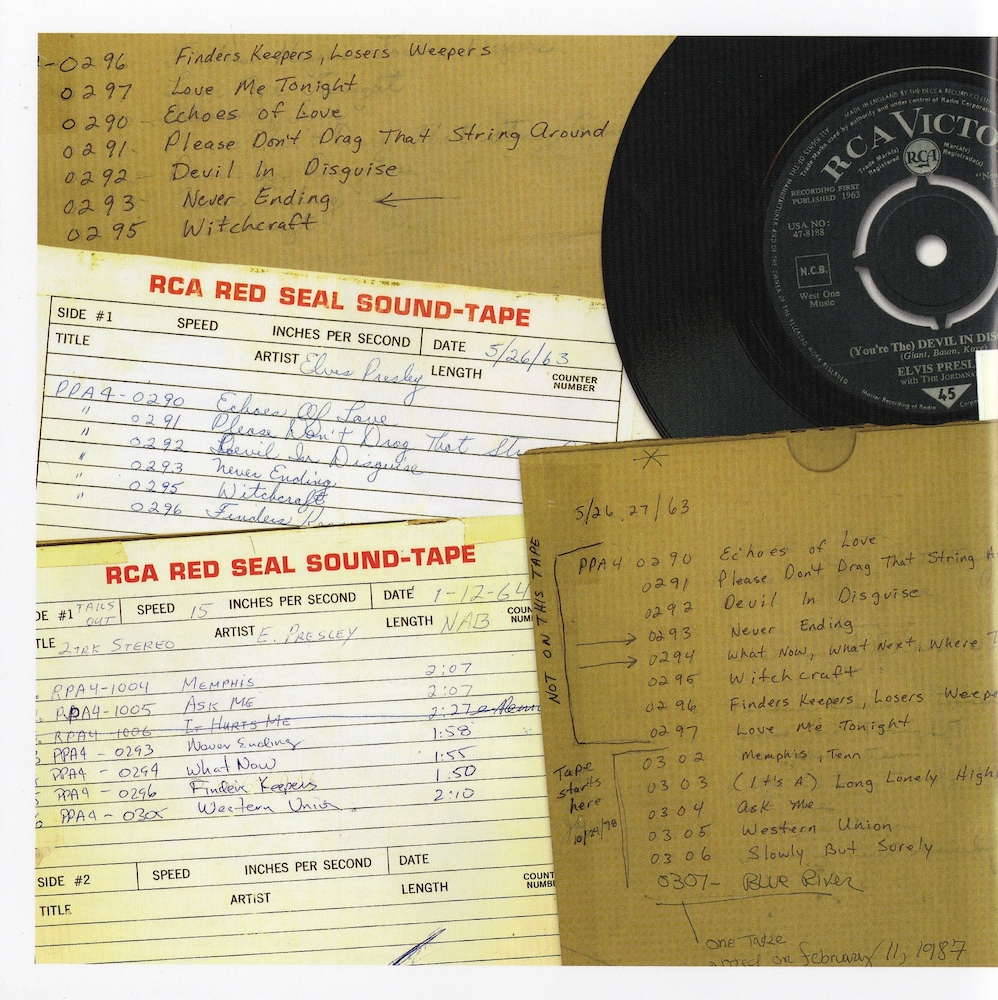 -0296 Finders Keepers, Losers Weepers
0297 Love Me Tonight
0290 Echoes of Love
0291 Please Don't Drag That String Around
0292 Devil In Disguise
0293 Never Ending ←
0295 Witchcraft
RCA RED SEAL SOUND-TAPE
SIDE #1 SPEED INCHES PER SECOND DATE 5/26/63
TITLE ARTIST Elvis Presley LENGTH COUNTER NUMBER
PPA4-0290 Echoes Of Love
" 0291 Please Don't Drag That Str
" 0292 Devil In Disguise
" 0293 Never Ending
" 0295 Witchcraft
" 0296 Finders K
RCA RED SEAL SOUND-TAPE
DE #1 TAILS OUT SPEED 15 INCHES PER SECOND DATE 1-12-64
TLE 2TRK STEREO ARTIST E. PRESLEY LENGTH NAB COUN NUM
RPA4-1004 MEMPHIS 2:07
RPA4-1005 ASK ME 2:07
RPA4-1006 IT HURTS ME 2:27
PPA4-0293 Never Ending 1:58
PPA4-0294 What Now 1:55
PPA4-0296 Finders Keepers 1:50
PPA4-0305 Western Union 2:10
SIDE #2 SPEED INCHES PER SECOND DATE
TITLE ARTIST LENGTH COUNT NUMBE
RCA VICTO
RCA
Trade Mark(s) Registered
Marca(s) Registrada(s)
RECORDING FIRST PUBLISHED 1963
USA NO: 47-8188
N.C.B.
West One Music
(You're The) DEVIL IN DIS
(Giant, Baum, Ka
ELVIS PRESL
with THE JORDANA
45
5/26, 27/63
NOT ON THIS TAPE
PPA4 0290 Echoes of Love
0291 Please Don't Drag That String A
0292 Devil In Disguise
→ 0293 Never Ending
→ 0294 What Now, What Next, Where T
0295 Witchcraft
0296 Finders Keepers, Losers Weepe
0297 Love Me Tonight
Tape starts here
10/24/78
0302 Memphis, Tenn
0303 (It's A) Long Lonely High
0304 Ask Me
0305 Western Union
0306 Slowly But Surely
0307- BLUE RIVER
ONE TAKE
on february 11, 1987